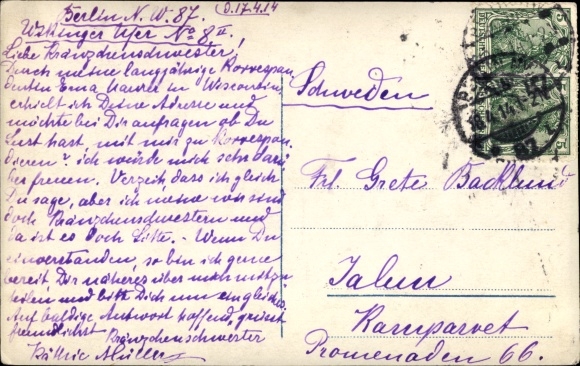 Berlin N.W. 87.
D. 17.4.14
Wikinger Ufer No 8 II.
Liebe Kränzchenschwester!
Durch meine langjährige Korrespon
dentin Erna in Wisconsin
erhielt ich Deine Adresse und
möchte bei Dir anfragen ob Du
Lust hast, mit mir zu Korrespon
dieren? ich würde mich sehr darü
ber freuen. Verzeih, dass ich gleich
Du sage, aber ich meine wir sind
doch Kränzchenschwestern und
da ist es doch Sitte. - Wenn Du
einverstanden, so bin ich gerne
bereit, Dir näheres über mich mitzu
teilen und bitte Dich um ein gleiches.
Auf baldige Antwort hoffend, grüsst
freundlichst
Kränzchenschwester
Käthie Müller
Schweden
Frl. Grete Backlund
Falun
Kamparvet
Promenaden 66.